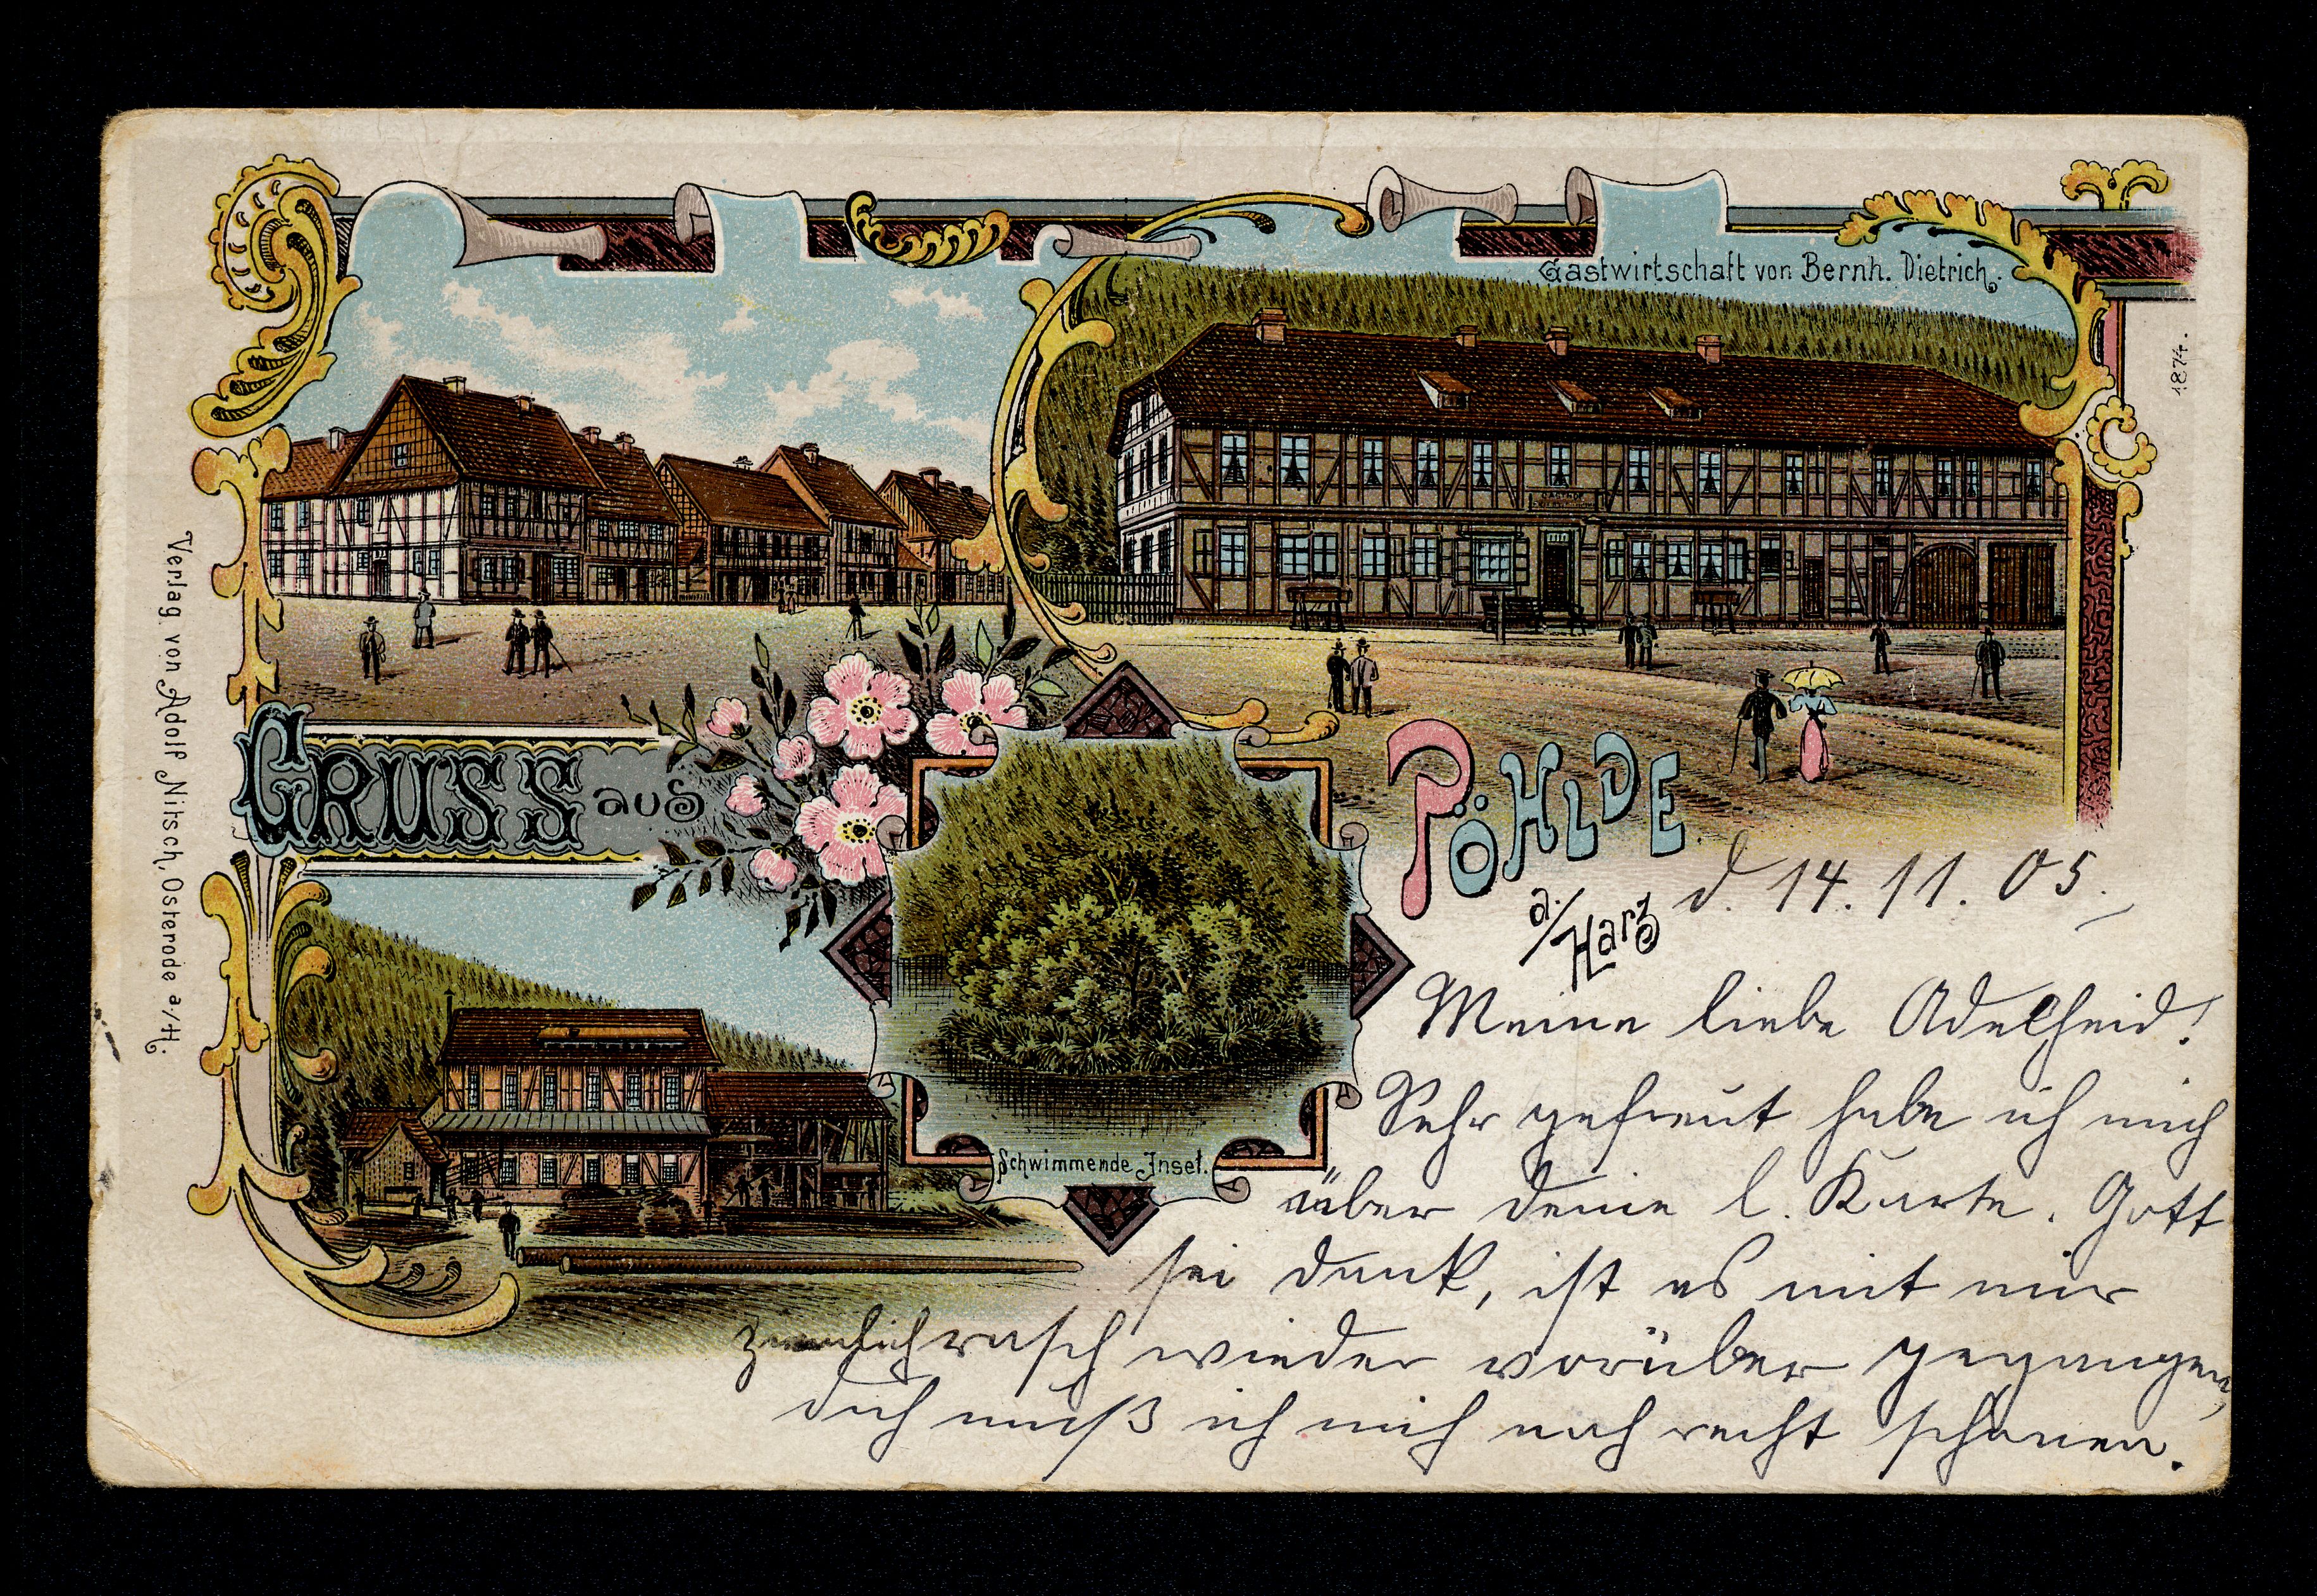 Gastwirtschaft von Bernh. Dietrich.
1874.
Verlag von Adolf Nitsch, Osterode a/H.
GRUSS aus
PÖHLDE
a/Harz
Schwimmende Insel.
d. 14. 11. 05.
Meine liebe Adelheid!
Sehr gefreut habe ich mich
über deine l. Karte. Gott
sei dank, ist es mit mir
ziemlich rasch wieder vorüber gegangen,
doch muß ich mich noch recht schonen.